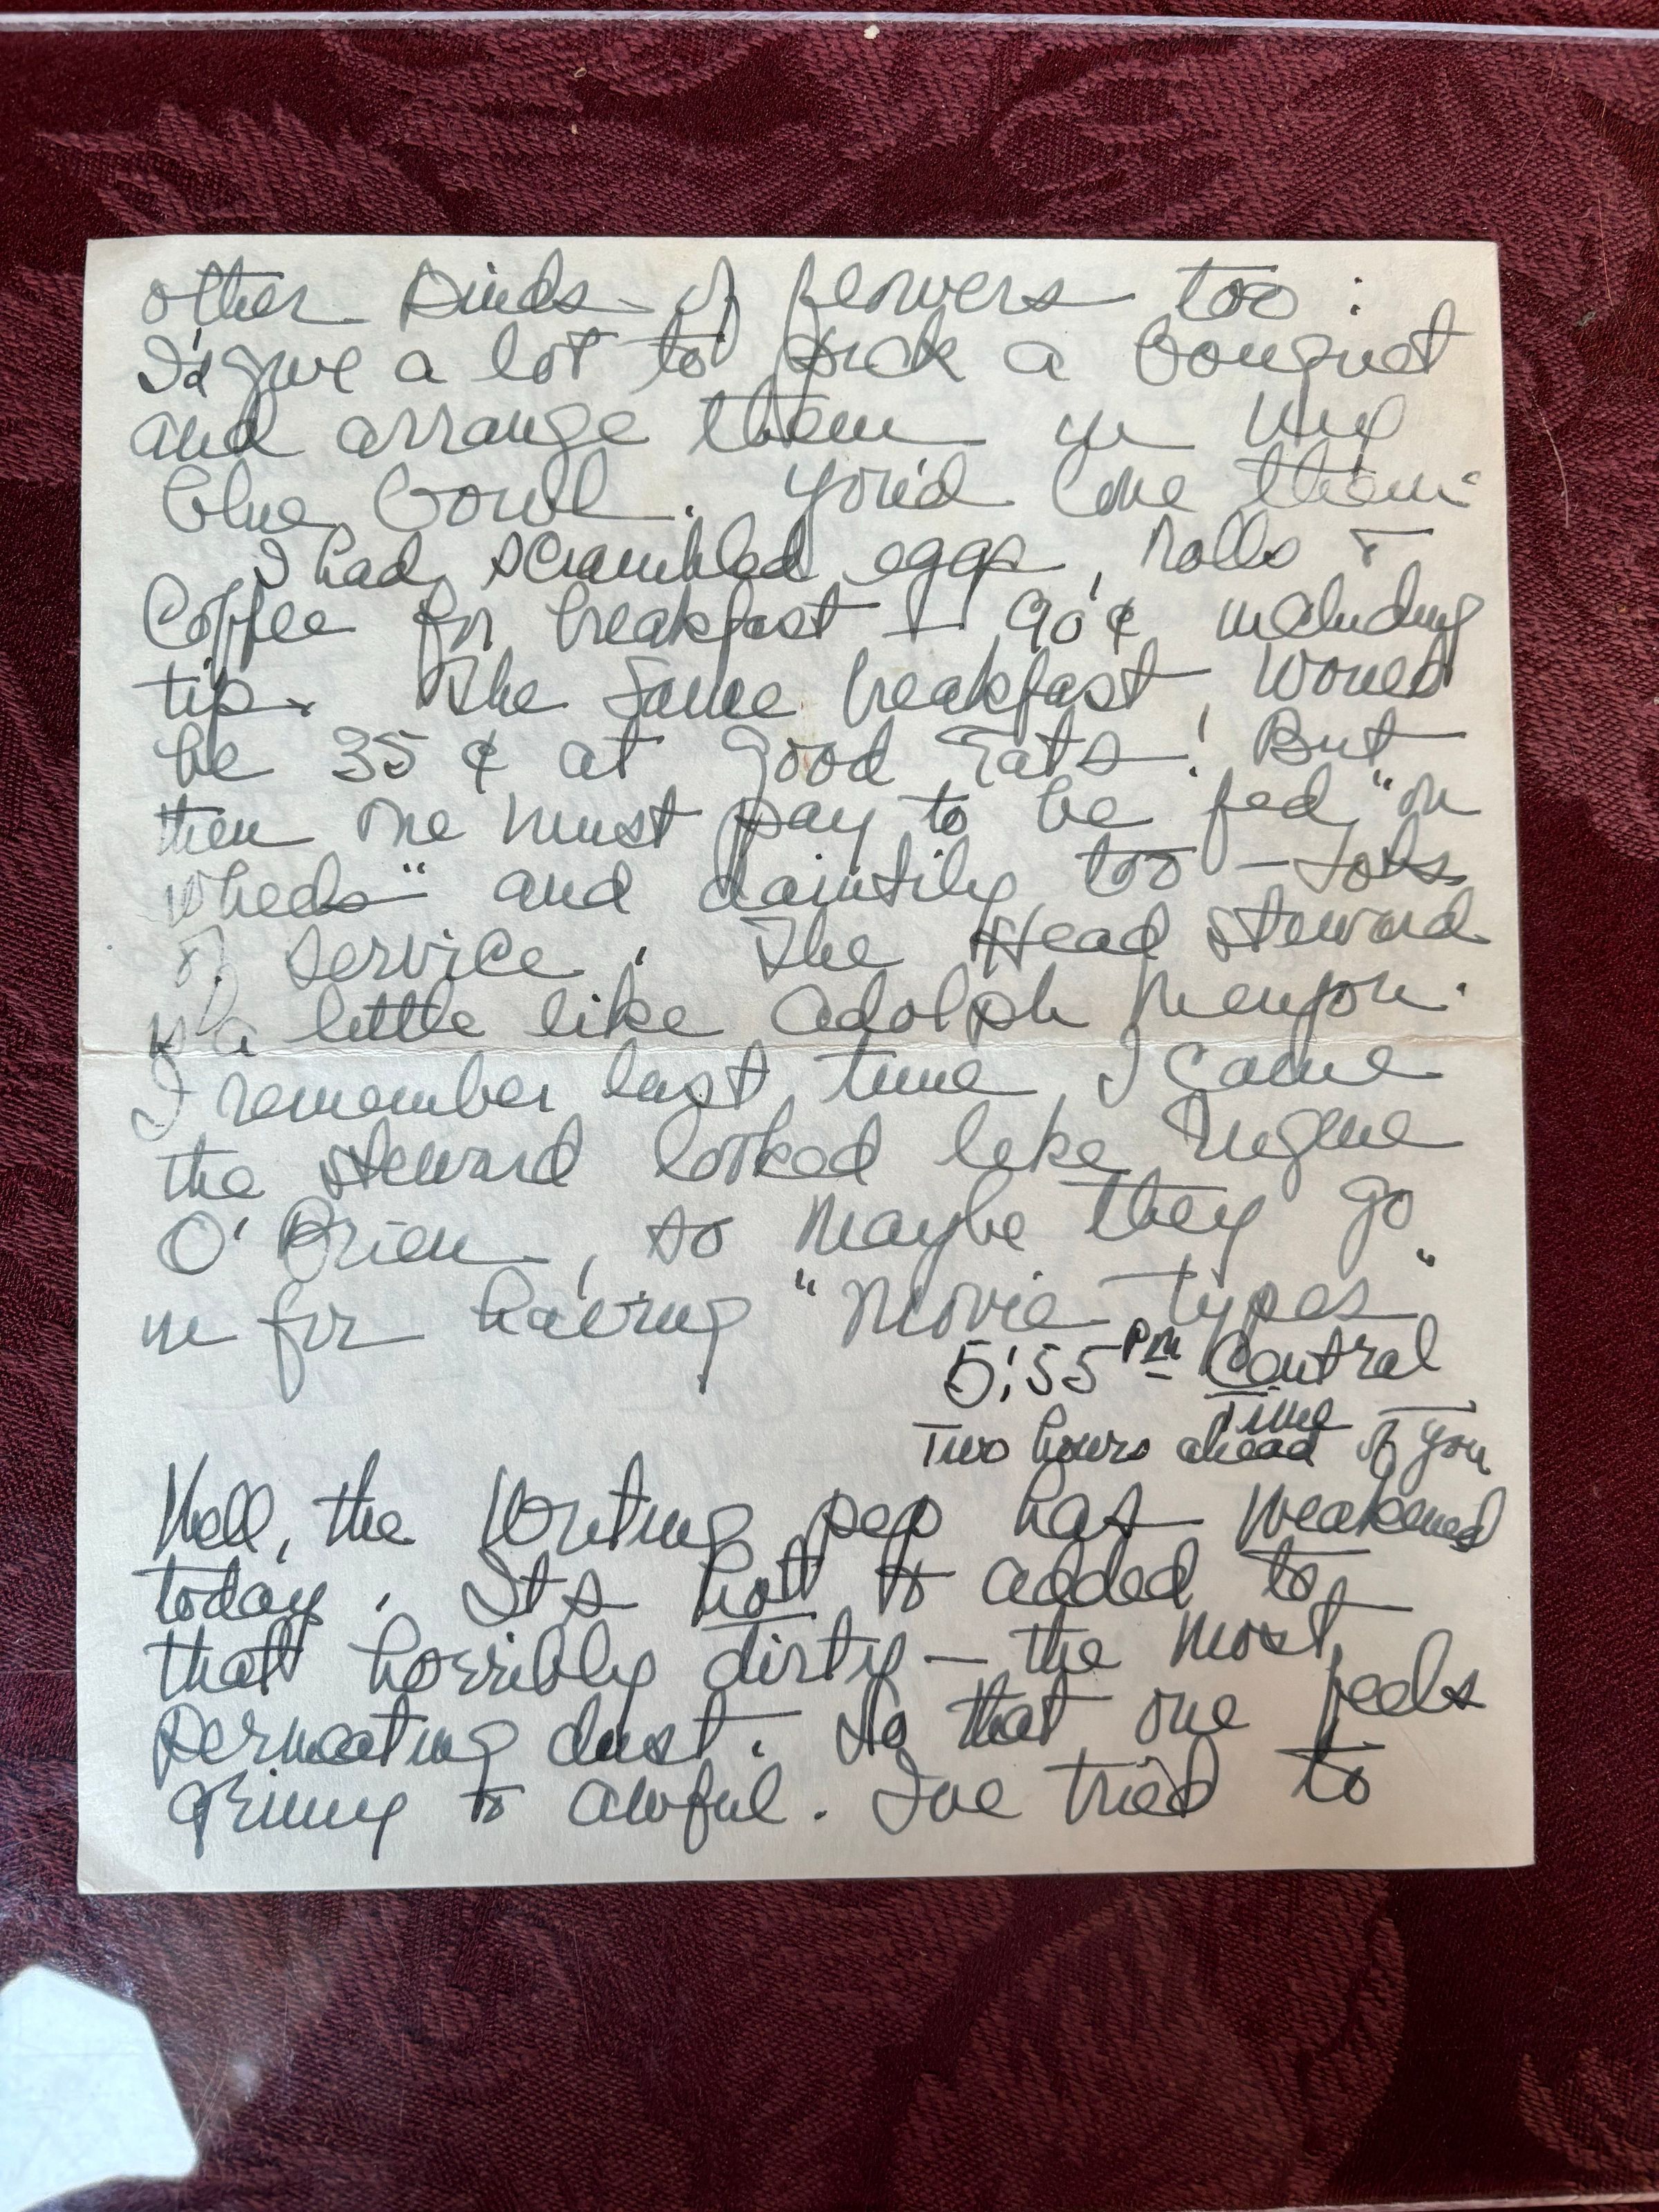 other kinds of flowers too.
I'd give a lot to pick a bouquet
and arrange them in my
blue bowl. You'd love them.
I had scrambled eggs, rolls &
Coffee for breakfast — 90¢ including
tip. The same breakfast would
be 35¢ at Good Eats! But
then one must pay to be fed "on
wheels" and daintily too — lots
of service. The Head steward
is a little like Adolph Menjou.
I remember last time I came
the steward looked like
O'Brien, so maybe they go
in for having "movie types"
5:55 PM Central
Time
Two hours ahead of you
Well, the writing pep has weakened
today. Its hot & added to
that horribly dirty — the most
permeating dust. So that one feels
grimy & awful. I've tried to